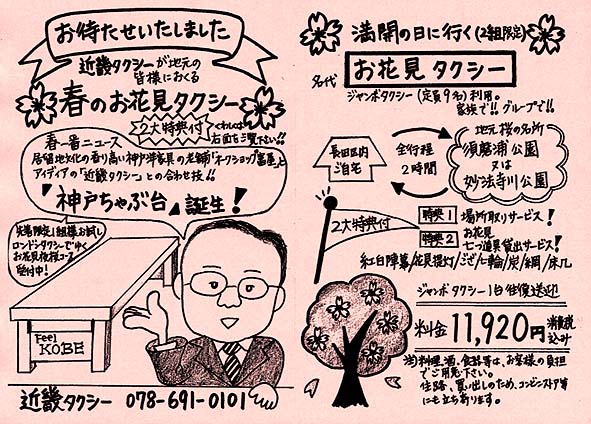 お待たせいたしました
近畿タクシーが地元の
皆様におくる
春のお花見タクシー
2大特典付
くわしくは
右面をご覧下さい!!
春一番ニュース
居留地文化の香り高い神戸洋家具の老舗「ネクショップ富屋」と
アイディアの「近畿タクシー」との合わせ技!!
「神戸ちゃぶ台」誕生!
先着限定1組様お試し
ロンドンタクシーでゆく
お花見夜桜コース
受付中!
Feel
KOBE
近畿タクシー 078-691-0101
満開の日に行く(2組限定)
名代 お花見タクシー
ジャンボタクシー(定員9名)利用。
家族で!!グループで!!
長田区内
ご自宅
全行程
2時間
地元桜の名所
須磨浦公園
又は
妙法寺川公園
2大特典付
特典1 場所取りサービス!
特典2 お花見
七つ道具貸出サービス!
紅白陣幕/花見提灯/ござ/七輪/炭/網/床几
ジャンボタクシー1台往復送迎
料金 11,920円 消費税
込み
注)料理、酒、食器等は、お客様の負担
でご用意下さい。
往路、買い出しのため、コンビニストア等
にも立ち寄ります。